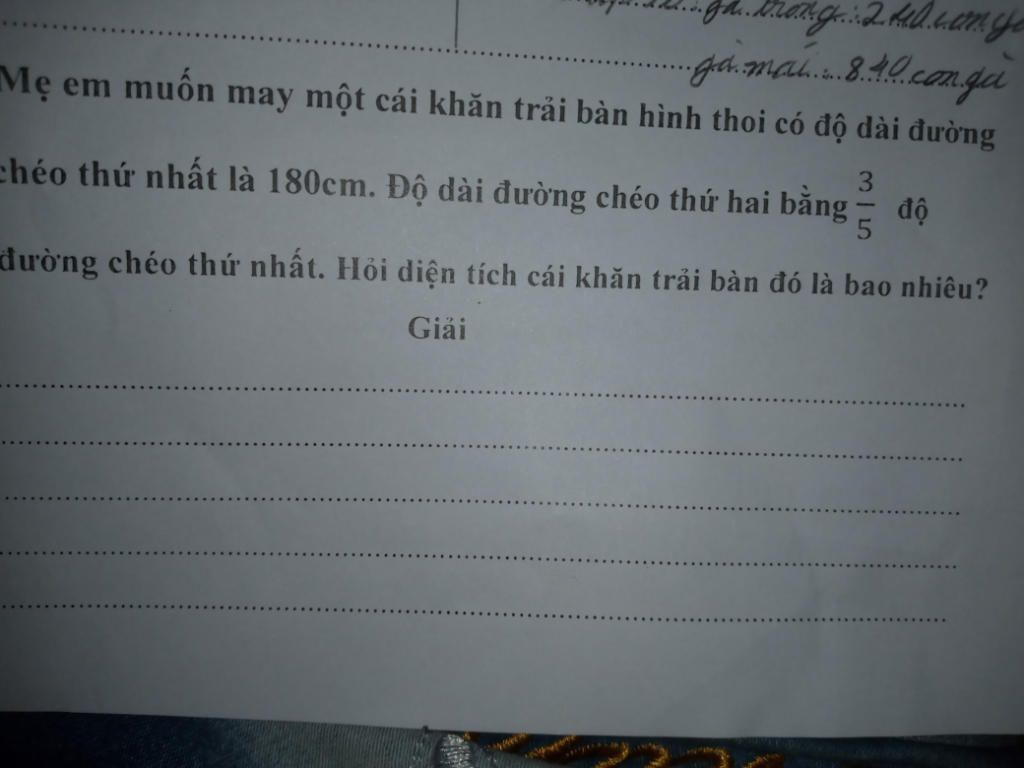 gà trống : 240 con gà
gà mái : 840 con gà
Mẹ em muốn may một cái khăn trải bàn hình thoi có độ dài đường
chéo thứ nhất là 180cm. Độ dài đường chéo thứ hai bằng 3/5 độ
đường chéo thứ nhất. Hỏi diện tích cái khăn trải bàn đó là bao nhiêu?
Giải